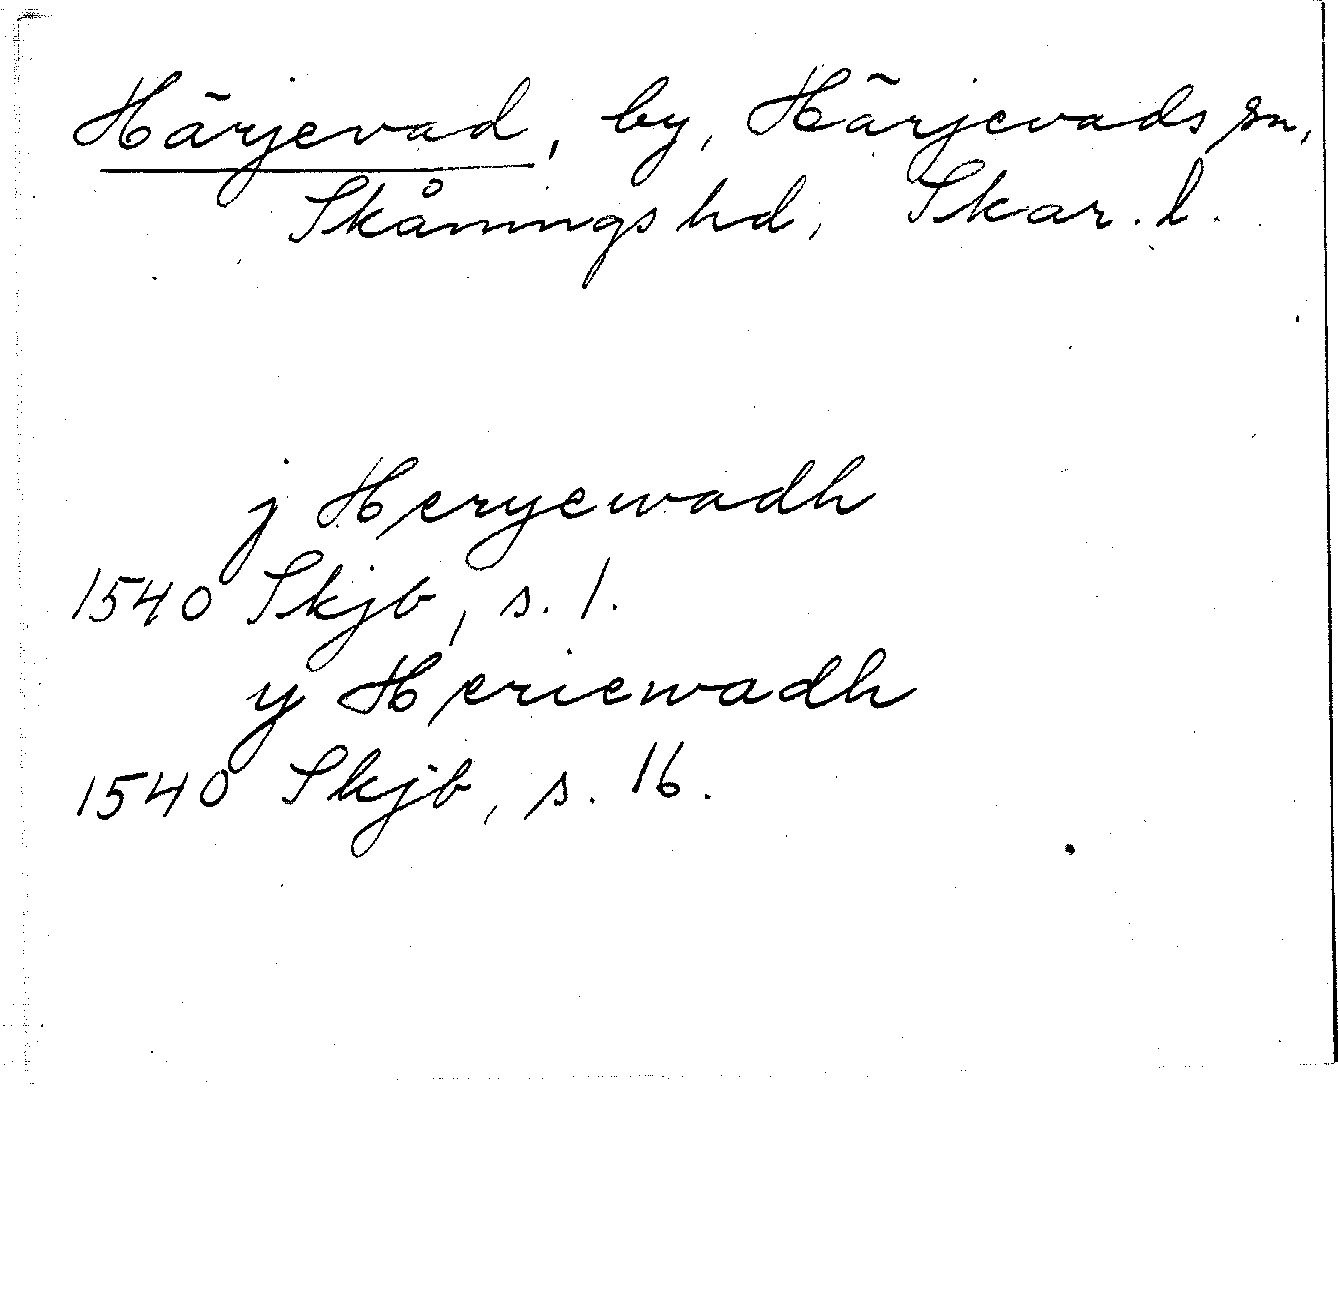 Härjevad, by, Härjevads sn,
Skånings hd, Skar. l.
j Heryewadh
1540 Skjb, s. 1.
y Heriewadh
1540 Skjb, s. 16.